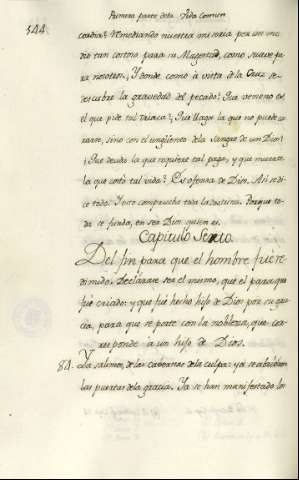 Primera parte dela Vida Comun
144
cordia? Remediando nuestra miseria por un me
dio tan costoso para su Magestad, como suave pa
ra nosotros. Y donde como à vista de la Cruz se de
descubre la gravedad del pecado? Que veneno es
el que pide tal triaca? Que llaga la que no puede cu
rarse, sino con el ungüento dela Sangre de un Dios?
Que deuda la que requiere tal pago, y que muerte
la que costò tal vida? Es ofensa de Dios. Asi se di
ce todo. Y esto comprueba toda la doctrina. Porque to
da se funda, en ser Dios quien es.
Capitulo Sexto
Del fin para que el hombre fue re
dimido. Declarase ser el mismo, que el para que
fue criado: y que fue hecho hijo de Dios por su gra
cia, para que se porte con la nobleza, que cor
responde à un hijo de Dios.
84. Ya salimos, de las cabernas dela culpa: ya se abrieron
las puertas dela gracia. Ya se han manifestado los